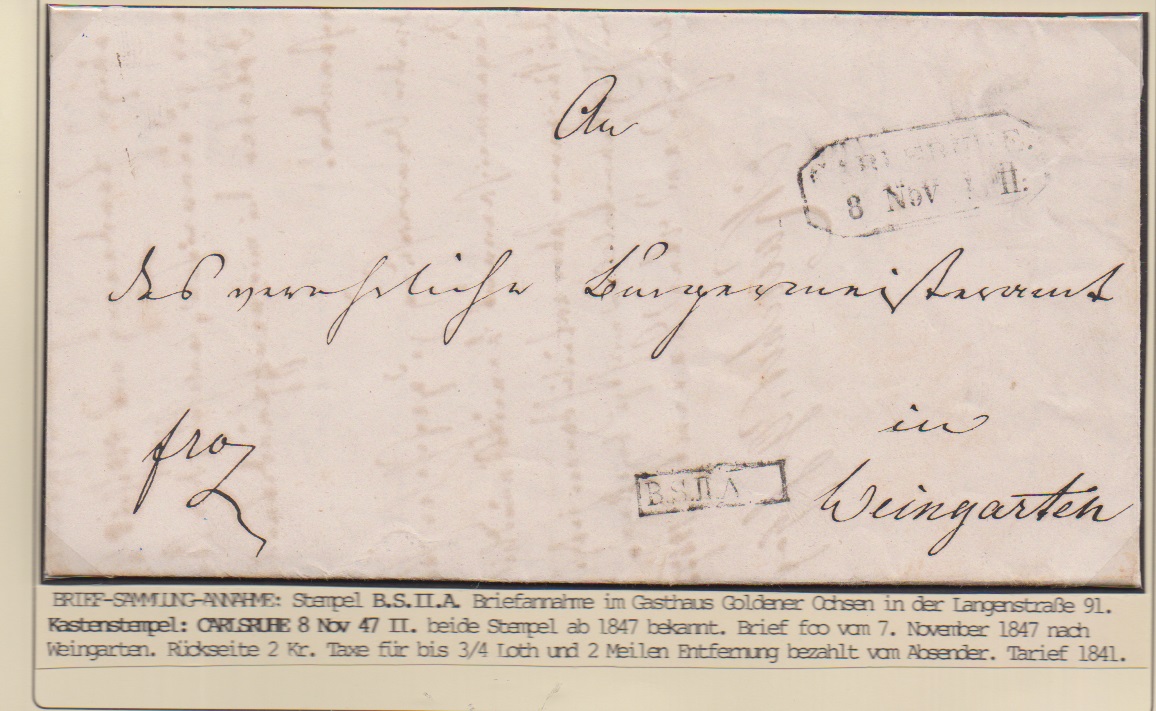 An
CARLSRUHE.
8 Nov II.
das verehrliche Bürgermeisteramt
in
fro
B.S.II.A.
Weingarten
BRIEF-SAMMLUNG-ANNAHME: Stempel B.S.II.A. Briefannahme im Gasthaus Goldener Ochsen in der Langenstraße 91.
Kastenstempel: CARLSRUHE 8 Nov 47 II. beide Stempel ab 1847 bekannt. Brief fco vom 7. November 1847 nach
Weingarten. Rückseite 2 Kr. Taxe für bis 3/4 Loth und 2 Meilen Entfernung bezahlt vom Absender. Tarief 1841.